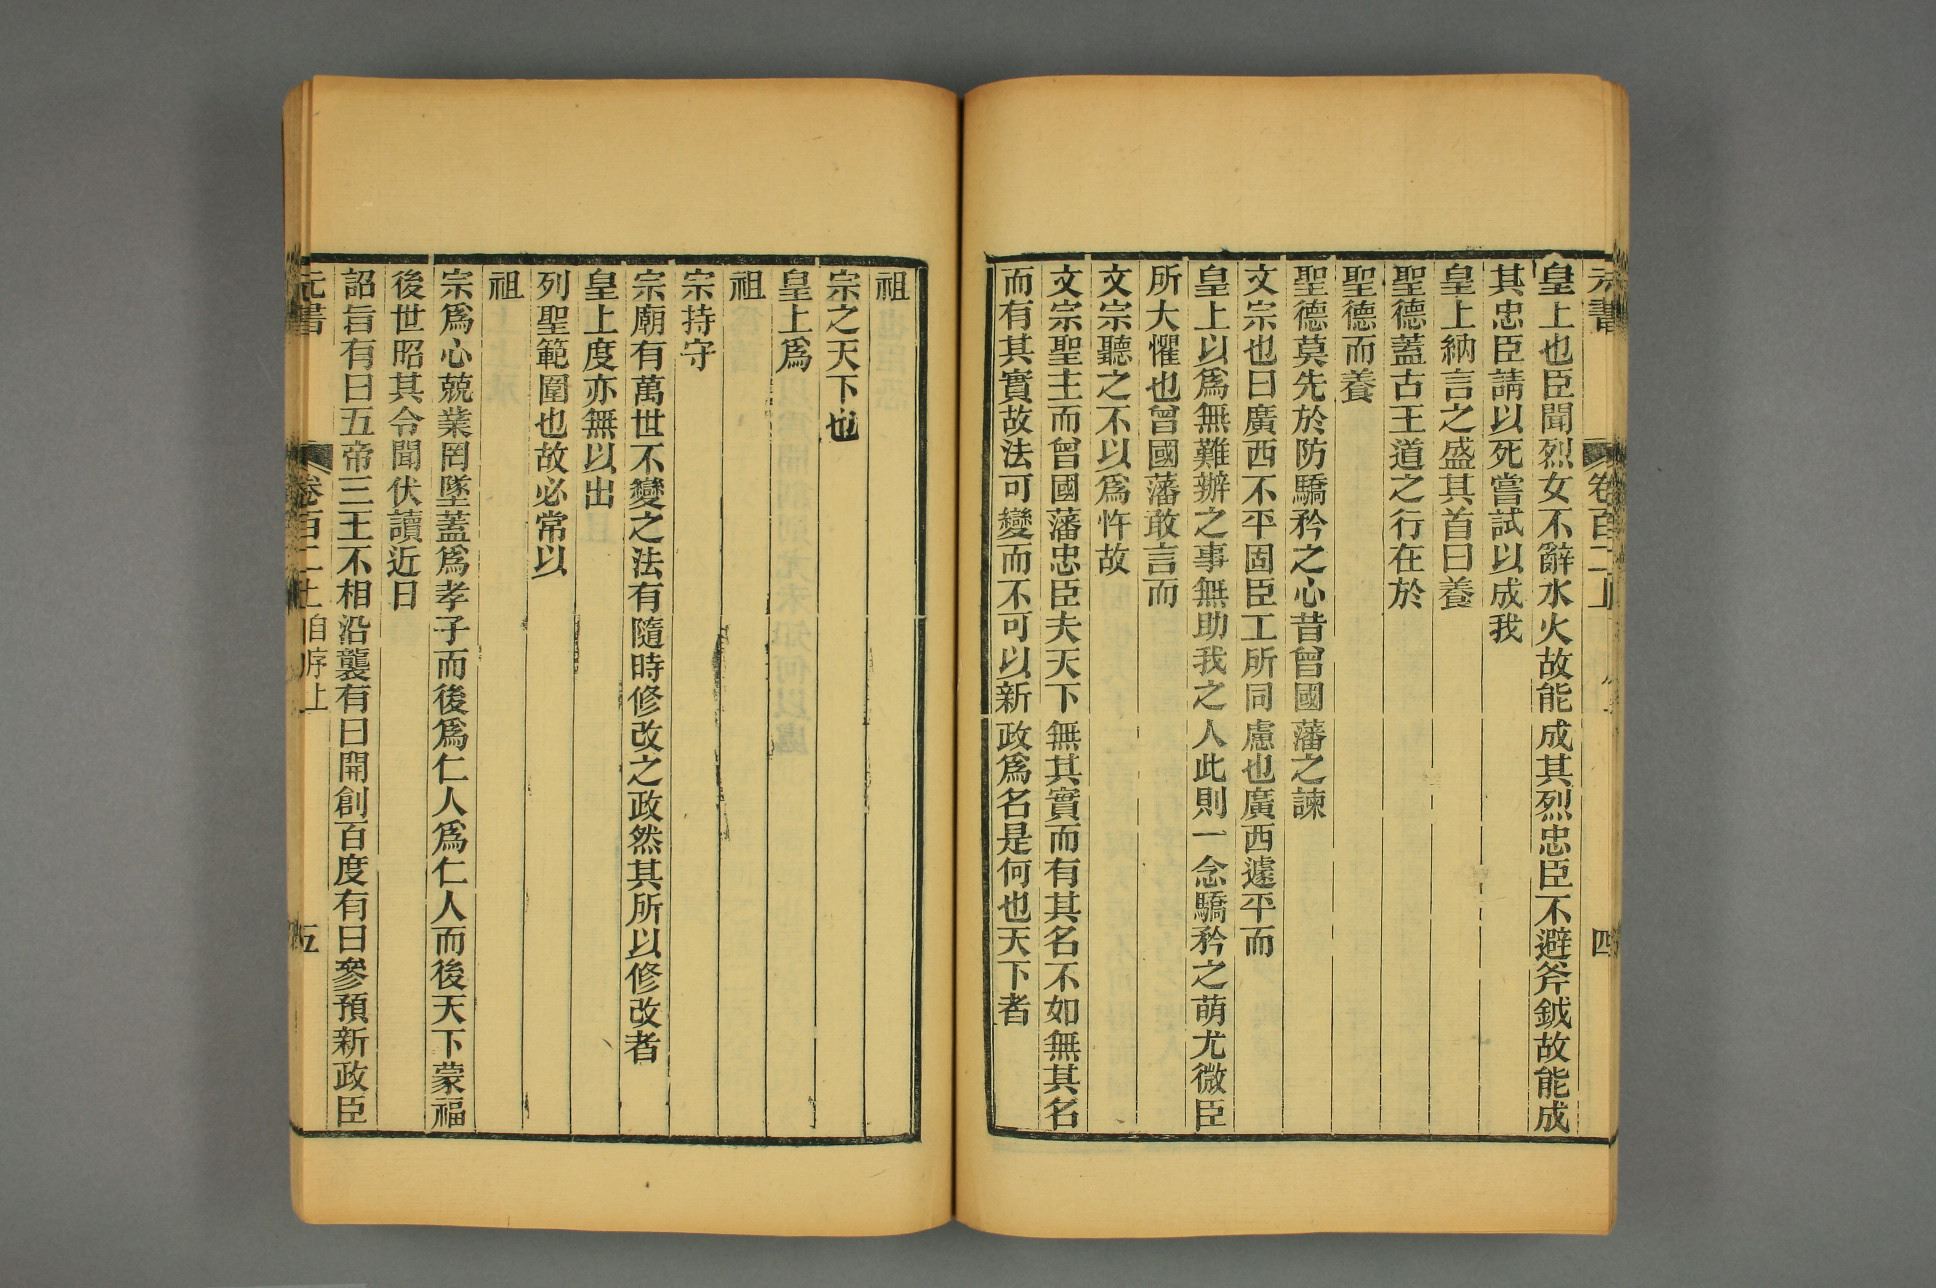 元書 卷百二上 四
皇上也臣聞烈女不辭水火故能成其烈忠臣不避斧鉞故能成
其忠臣請以死嘗試以成我
皇上納言之盛其首曰養
聖德蓋古王道之行在於
聖德而養
聖德莫先於防驕矜之心昔曾國藩之諫
文宗也曰廣西不平固臣工所同慮也廣西遽平而
皇上以爲無難辦之事無助我之人此則一念驕矜之萌尤微臣
所大懼也曾國藩敢言而
文宗聽之不以爲忤故
文宗聖主而曾國藩忠臣夫天下無其實而有其名不如無其名
而有其實故法可變而不可以新政爲名是何也天下者
祖
宗之天下也
皇上爲
祖
宗持守
宗廟有萬世不變之法有隨時修改之政然其所以修改者
皇上度亦無以出
列聖範圍也故必常以
祖
宗爲心兢業罔墜蓋爲孝子而後爲仁人爲仁人而後天下蒙福
後世昭其令聞伏讀近日
詔旨有曰五帝三王不相沿襲有曰開創百度有曰參預新政臣
元書 卷百二上 自序上 五